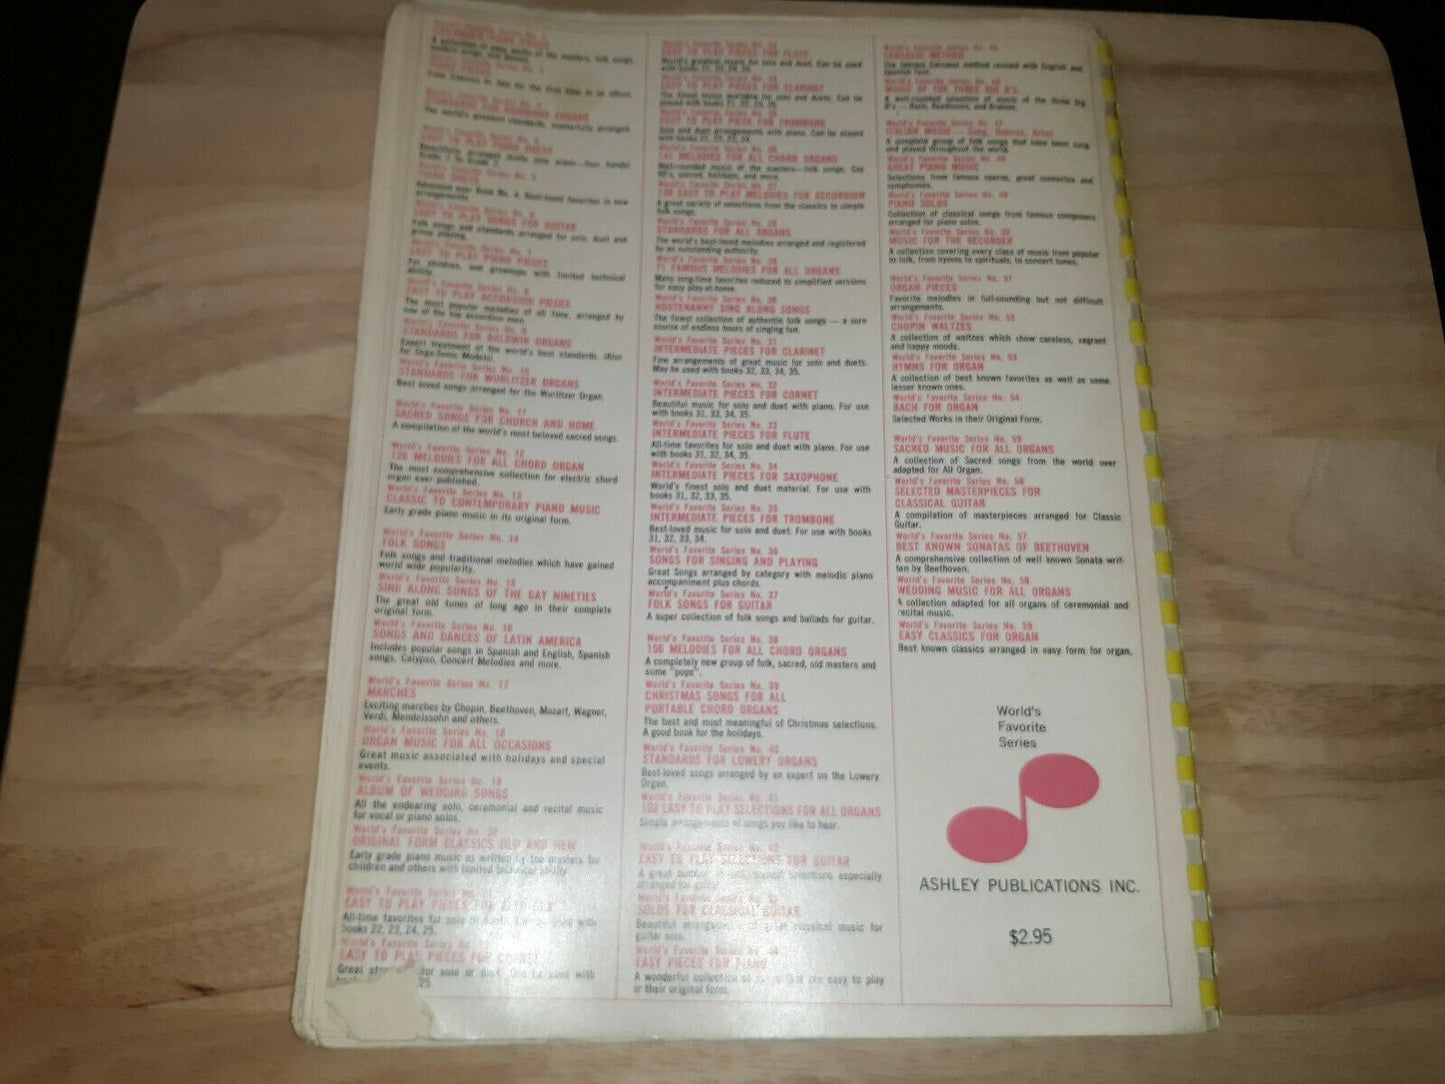 A collection of easy works of the masters, folk songs,
The world's greatest standards, masterfully arranged.
Beautifully arranged duets one piano—four hands!
Grade 1 to Grade 3.
Advanced over Book No. 4. Best-loved favorites in new
arrangements.
World's Favorite Series No. 6
EASY TO PLAY SONGS FOR GUITAR
Folk songs and standards arranged for solo, duet and
group playing.
World's Favorite Series No. 7
EASY TO PLAY PIANO PIECES
For children, and grownups with limited technical
ability.
World's Favorite Series No. 8
EASY TO PLAY ACCORDION PIECES
The most popular melodies of all time, arranged by
one of the top accordion men.
World's Favorite Series No. 9
STANDARDS FOR BALDWIN ORGANS
Expert treatment of the world's best standards. (Also
for Orga-Sonic Models).
World's Favorite Series No. 10
STANDARDS FOR WURLITZER ORGANS
Best loved songs arranged for the Wurlitzer Organ.
World's Favorite Series No. 11
SACRED SONGS FOR CHURCH AND HOME
A compilation of the world's most beloved sacred songs.
World's Favorite Series No. 12
126 MELODIES FOR ALL CHORD ORGAN
The most comprehensive collection for electric chord
organ ever published.
World's Favorite Series No. 13
CLASSIC TO CONTEMPORARY PIANO MUSIC
Early grade piano music in its original form.
World's Favorite Series No. 14
FOLK SONGS
Folk songs and traditional melodies which have gained
world wide popularity.
World's Favorite Series No. 15
SING ALONG SONGS OF THE GAY NINETIES
The great old tunes of long ago in their complete
original form.
World's Favorite Series No. 16
SONGS AND DANCES OF LATIN AMERICA
Includes popular songs in Spanish and English, Spanish
songs, Calypso, Concert Melodies and more.
World's Favorite Series No. 17
MARCHES
Exciting marches by Chopin, Beethoven, Mozart, Wagner,
Verdi, Mendelssohn and others.
World's Favorite Series No. 18
ORGAN MUSIC FOR ALL OCCASIONS
Great music associated with holidays and special
events.
World's Favorite Series No. 19
ALBUM OF WEDDING SONGS
All the endearing solo, ceremonial and recital music
for vocal or piano solos.
World's Favorite Series No. 20
ORIGINAL FORM CLASSICS OLD AND NEW
Early grade piano music as written by the masters for
children and others with limited technical ability
World's Favorite Series
EASY TO PLAY PIECES FOR
All-time favorites for solo or duet. Can be used with
books 22, 23, 24, 25.
World's Favorite Series No.
EASY TO PLAY PIECES FOR
Great for solo or duet. Can be used with
25.
World's Favorite Series No. 23
EASY TO PLAY PIECES FOR FLUTE
World's greatest music for solo and duet. Can be used
with books 21, 22, 24, 25.
World's Favorite Series No. 24
EASY TO PLAY PIECES FOR CLARINET
The finest music available for solo and duets. Can be
World's Favorite Series No. 25
EASY TO PLAY PIECE FOR TROMBONE
Solo and duet arrangements with piano. Can be played
with books 21, 22, 23, 24.
World's Favorite Series No. 26
MELODIES FOR ALL CHORD ORGANS
Well-rounded music of the masters—folk songs, Gay
90's, sacred, holidays, and more.
World's Favorite Series No. 27
EASY TO PLAY MELODIES FOR ACCORDION
A great variety of selections from the classics to simple
folk songs.
World's Favorite Series No. 28
STANDARDS FOR ALL ORGANS
The world's best-loved melodies arranged and registered
by an outstanding authority.
World's Favorite Series No. 29
71 FAMOUS MELODIES FOR ALL ORGANS
Many long-time favorites reduced to simplified versions
for easy play-at-home.
World's Favorite Series No. 30
HOOTENANNY SING ALONG SONGS
The finest collection of authentic folk songs — a sure
source of endless hours of singing fun.
World's Favorite Series No. 31
INTERMEDIATE PIECES FOR CLARINET
Fine arrangements of great music for solo and duets.
May be used with books 32, 33, 34, 35.
World's Favorite Series No. 32
INTERMEDIATE PIECES FOR CORNET
Beautiful music for solo and duet with piano. For use
with books 31, 33, 34, 35.
World's Favorite Series No. 33
INTERMEDIATE PIECES FOR FLUTE
All-time favorites for solo and duet with piano. For use
with books 31, 32, 34, 35.
World's Favorite Series No. 34
INTERMEDIATE PIECES FOR SAXOPHONE
World's finest solo and duet material. For use with
books 31, 32, 33, 35.
World's Favorite Series No. 35
INTERMEDIATE PIECES FOR TROMBONE
Best-loved music for solo and duet. For use with books
31, 32, 33, 34.
World's Favorite Series No. 36
SONGS FOR SINGING AND PLAYING
Great Songs arranged by category with melodic piano
accompaniment plus chords.
World's Favorite Series No. 37
FOLK SONGS FOR GUITAR
A super collection of folk songs and ballads for guitar.
World's Favorite Series No. 38
156 MELODIES FOR ALL CHORD ORGANS
A completely new group of folk, sacred, old masters and
some "pops".
World's Favorite Series No. 39
CHRISTMAS SONGS FOR ALL
PORTABLE CHORD ORGANS
The best and most meaningful of Christmas selections.
A good book for the holidays.
World's Favorite Series No. 40
STANDARDS FOR LOWERY ORGANS
Best-loved songs arranged by an expert on the Lowery
Organ.
World's Favorite Series No. 41
EASY TO PLAY SELECTIONS FOR ALL ORGANS
Simple arrangements of songs you like to hear.
World's Favorite Series No. 42
EASY TO PLAY SELECTIONS FOR GUITAR
A great number of selections, especially
arranged for guitar.
World's Favorite Series No.
SOLOS FOR CLASSICAL GUITAR
Beautiful arrangements of great classical music for
guitar solo.
World's Favorite Series No. 44
EASY PIECES FOR PIANO
A wonderful collection of that are easy to play
in their original form.
CARCASSI METHOD
The famous Carcassi method revised with English and
Spanish Text.
MUSIC OF THE THREE BIG B'S
A well-rounded selection of music of the three big
B's — Bach, Beethoven, and Brahms.
World's Favorite Series No. 47
ITALIAN MUSIC — Song, Dances, Arias
A complete group of folk songs that have been sung
and played throughout the world.
World's Favorite Series No. 48
GREAT PIANO MUSIC
Selections from famous operas, great concertos and
symphonies.
World's Favorite Series No. 49
PIANO SOLOS
Collection of classical songs from famous composers
arranged for piano solos.
World's Favorite Series No. 50
MUSIC FOR THE RECORDER
A collection covering every class of music from popular
to folk, from hymns to spirituals, to concert tunes.
World's Favorite Series No. 51
ORGAN PIECES
Favorite melodies in full-sounding but not difficult
arrangements.
World's Favorite Series No. 52
CHOPIN WALTZES
A collection of waltzes which show careless, vagrant
and happy moods.
World's Favorite Series No. 53
HYMNS FOR ORGAN
A collection of best known favorites as well as some
lesser known ones.
World's Favorite Series No. 54
BACH FOR ORGAN
Selected Works in their Original Form.
World's Favorite Series No. 55
SACRED MUSIC FOR ALL ORGANS
A collection of Sacred songs from the world over
adapted for All Organ.
World's Favorite Series No. 56
SELECTED MASTERPIECES FOR
CLASSICAL GUITAR
A compilation of masterpieces arranged for Classic
Guitar.
World's Favorite Series No. 57
BEST KNOWN SONATAS OF BEETHOVEN
A comprehensive collection of well known Sonata writ-
ten by Beethoven.
World's Favorite Series No. 58
WEDDING MUSIC FOR ALL ORGANS
A collection adapted for all organs of ceremonial and
recital music.
World's Favorite Series No. 59
EASY CLASSICS FOR ORGAN
Best known classics arranged in easy form for organ.
World's
Favorite
Series
ASHLEY PUBLICATIONS INC.
$2.95